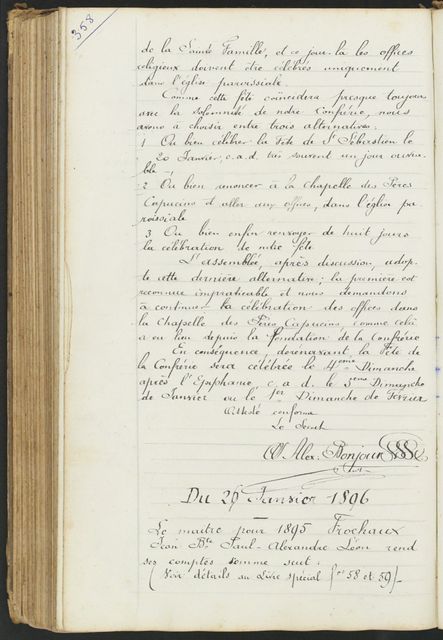 358
de la Sainte Famille, et ce jour-la les offices
religieux doivent être célébrés uniquement
dans l'église paroissiale.
Comme cette fête coïncidera presque toujours
avec la solennité de notre Confrérie, nous
avons à choisir entre trois alternatives.
1 Ou bien célébrer la Fête de St Sébastien le
20 Janvier, c.a.d. très souvent un jour ouvra-
ble,
2 Ou bien renoncer à la Chapelle des Pères
Capucins et aller aux offices, dans l'église pa-
roissiale
3 Ou bien enfin renvoyer de huit jours
la célébration de notre fête
L'assemblée, après discussion, adop-
te cette dernière alternative; la première est
reconnue impraticable et nous demandons
à continuer la célébration des offices dans
la Chapelle des Pères Capucins, comme cela
a eu lieu depuis la fondation de la Confrérie
En conséquence, dorénavant la Fête de
la Confrérie sera célébrée le 4eme Dimanche
après l'Epiphanie, c.a.d. le 5eme Dimanche
de Janvier ou le 1er Dimanche de Février
Attesté conforme
Le Secret
Alex. Bonjour
Du 26 Janvier 1896
Le maître pour 1895 Frochaux
Jean Bte Paul-Alexandre Léon rend
ses comptes comme suit:
(Voir détails au Livre spécial fos 58 et 59)